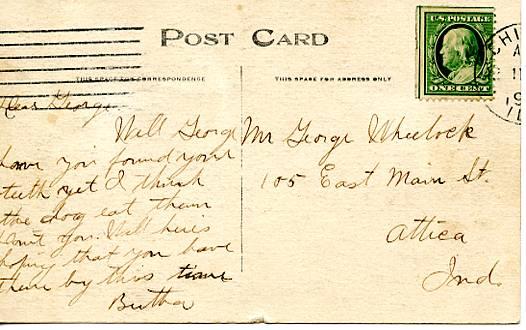 POST CARD
THIS SPACE FOR CORRESPONDENCE
THIS SPACE FOR ADDRESS ONLY
U.S. POSTAGE
ONE CENT
CHI
A
11
19
IL
Dear George
Well George
have you found your
teeth yet I think
the dog eat them
don't you. Well here's
hoping that you have
them by this time
Bertha
Mr George Wheelock
105 East Main St.
Attica
Ind.